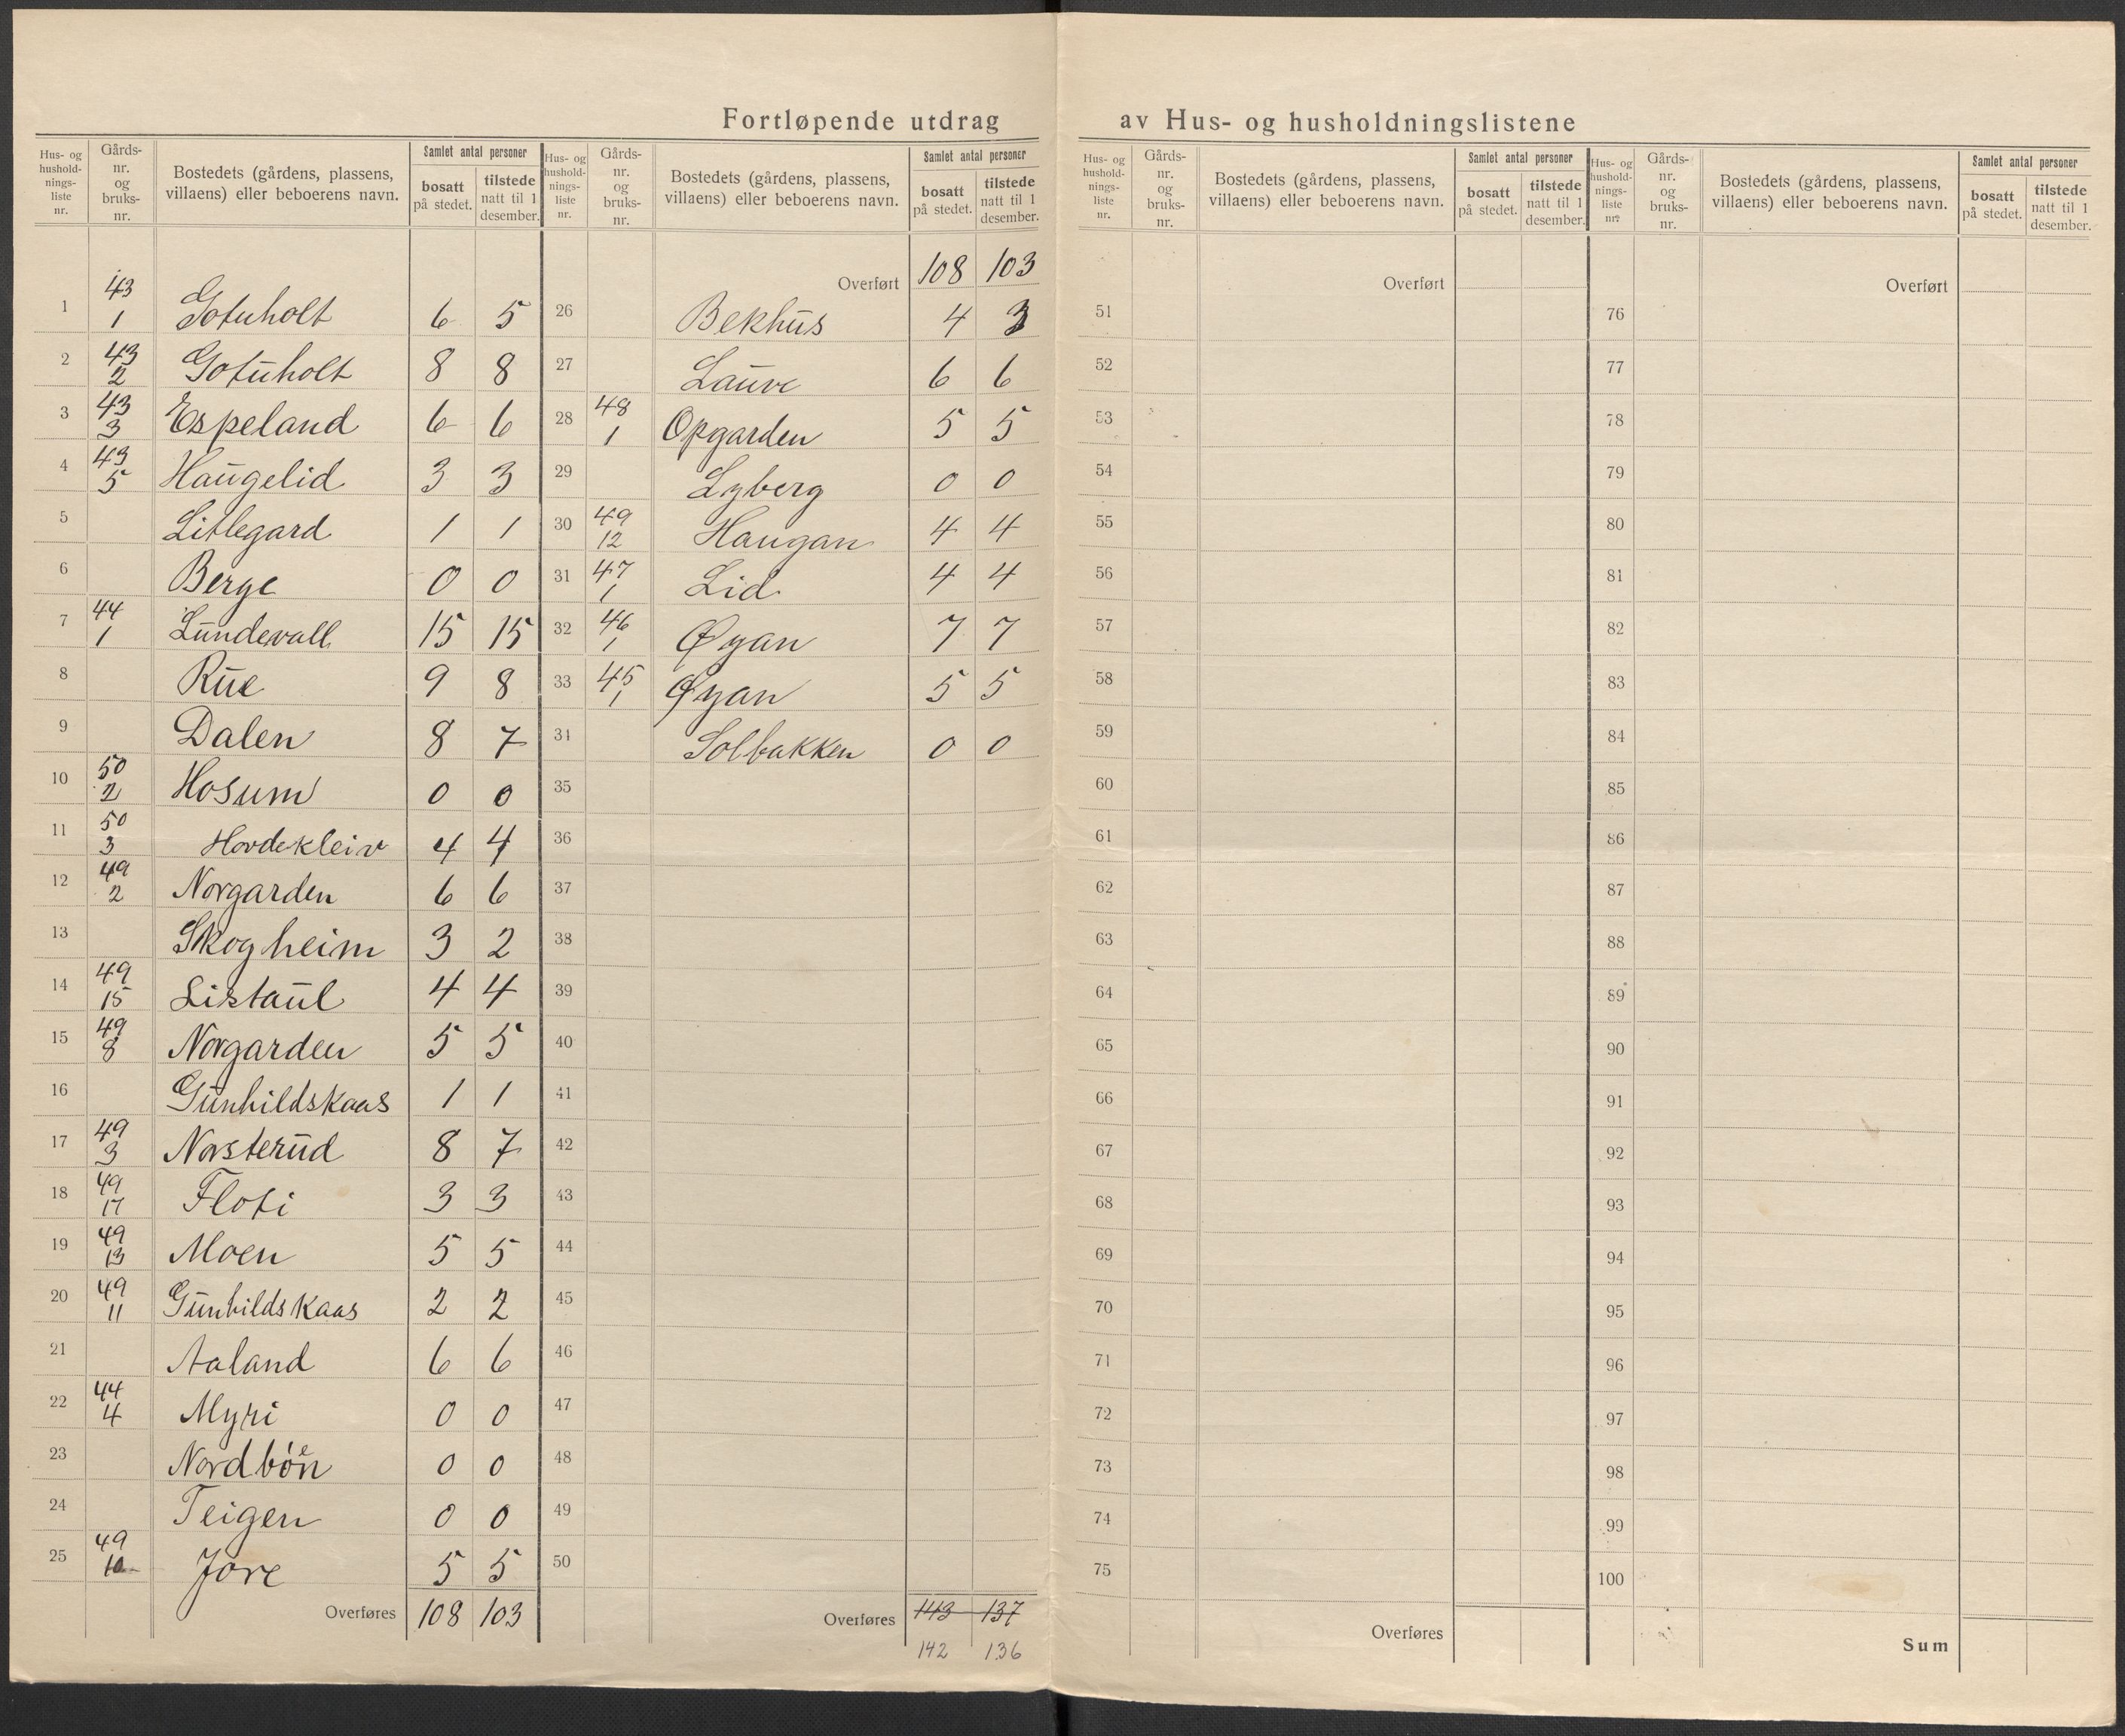 Fortløpende utdrag av Hus- og husholdningslistene
Hus- og hushold- nings- liste nr.
Gårds- nr. og bruks- nr.
Bostedets (gårdens, plassens, villaens) eller beboerens navn.
Samlet antal personer
bosatt på stedet.
tilstede natt til 1 desember.
1 43 1 Gotuholt 6 5
2 43 2 Gotuholt 8 8
3 43 3 Espeland 6 6
4 43 5 Haugelid 3 3
5 Litlegard 1 1
6 Berge 0 0
7 44 1 Lundevall 15 15
8 Rue 9 8
9 Dalen 8 7
10 50 2 Hosum 0 0
11 50 3 Hovdekleiv 4 4
12 49 2 Norgarden 6 6
13 Skogheim 3 2
14 49 15 Listaul 4 4
15 49 8 Norgarden 5 5
16 Gunhildskaas 1 1
17 49 3 Norsterud 8 7
18 49 17 Floti 3 3
19 49 13 Moen 5 5
20 49 11 Gunhildskaas 2 2
21 Aaland 6 6
22 44 4 Myri 0 0
23 0 0
24 Teigen 0 0
25 49 10 Jore 5 5
Overføres 108 103
Hus- og hushold- nings- liste nr.
Gårds- nr. og bruks- nr.
Bostedets (gårdens, plassens, villaens) eller beboerens navn.
Samlet antal personer
bosatt på stedet.
tilstede natt til 1 desember.
Overført 108 103
26 Bekhus 4 3
27 Lauve 6 6
28 48 1 Opgarden 5 5
29 Lyberg 0 0
30 49 12 Haugan 4 4
31 47 1 Lid 4 4
32 46 1 Øyan 7 7
33 45 1 Øyan 5 5
31 Solbakken 0 0
35
36
37
38
39
40
41
42
43
44
45
46
47
48
49
50
Overføres 143 137
142 136
Hus- og hushold- nings- liste nr.
Gårds- nr. og bruks- nr.
Bostedets (gårdens, plassens, villaens) eller beboerens navn.
Samlet antal personer
bosatt på stedet.
tilstede natt til 1 desember.
Overført
51
52
53
54
55
56
57
58
59
60
61
62
63
64
65
66
67
68
69
70
71
72
73
74
75
Overføres
Hus- og hushold- nings- liste nr.
Gårds- nr. og bruks- nr.
Bostedets (gårdens, plassens, villaens) eller beboerens navn.
Samlet antal personer
bosatt på stedet.
tilstede natt til 1 desember.
Overført
76
77
78
79
80
81
82
83
84
85
86
87
88
89
90
91
92
93
94
95
96
97
98
99
100
Sum